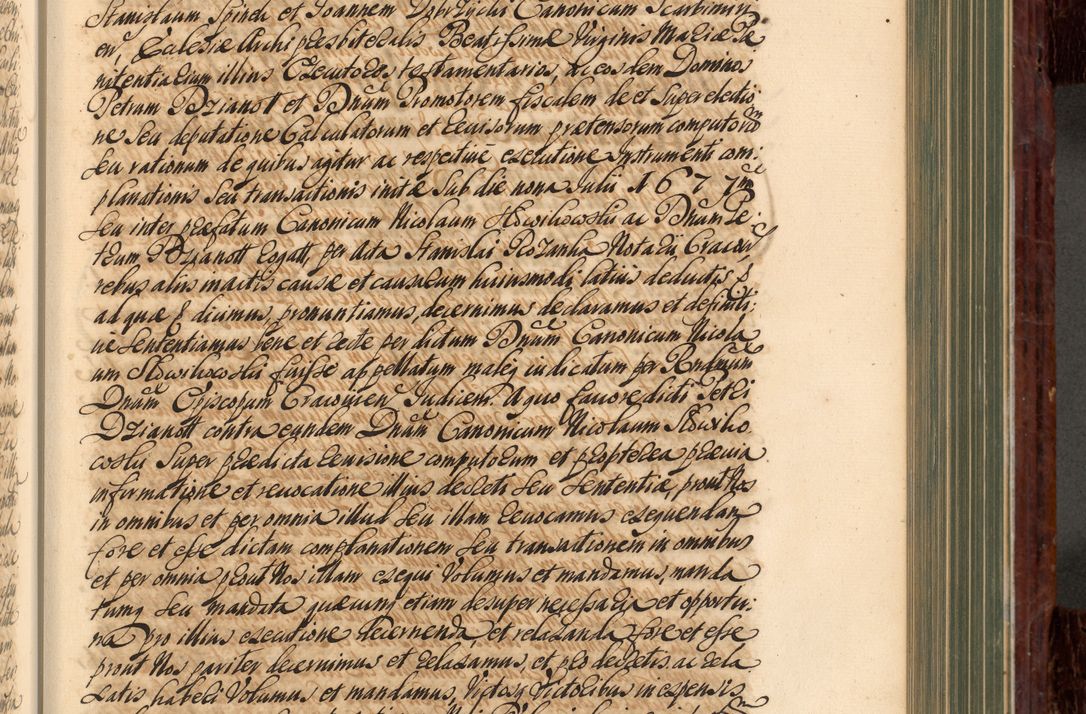 Stanislaum Spinek et Joannem Dobrzycki Canonicum Scarbimiri
en, Ecclesiæ Archi præsbiteralis Beatissimæ Virginis Mariæ Pæ
nitentiarium illius Executores testamentarios, ac eosdem Dominos
Petrum Dzianott et Dnum Promotorem fiscalem de et super electio
ne seu deputatione Calculatorum et revisorum prætensorum computorum
seu rationum de quibus agitur ac respective executione Instrumenti com:
planationis seu transactionis initæ sub die nona Julii 1677mi
seu inter præfatum Canonicum Nicolaum Słowikowski ac Dnum Pe:
trum Dzianott Rogatt, per Acta Stanislai Rozanka Notarii Cracovi
rebus aliis in actis causæ et causarum huiusmodi latius deductis Et
ad quæ dicimus, pronuntiamus, decernimus declaramus et definiti:
ve sententiamus bene et recte per dictum Dnum Canonicum Nicola
um Słowikowski fuisse appellatum maleq iudicatum per Rndmum
Dnum Episcopum Cracovien Judicem. A quo favore dicti Petri
Dzianott contra eundem Dnum Canonicum Nicolaum Słowiko
coski super prædicta revisione computorum et propterea prævia
informatione et revocatione illius decreti seu sententiæ, prout Nos
in omnibus et per omnia illud seu illam revocamus exequendam
fore et esse dictam complanationem seu transactionem in omnibus
et per omnia prout Nos illam exequi Volumus et mandamus, manda
tumq seu mandata quæcunq etiam desuper necessaria et opportu:
na pro illius executione decernenda, et relaxanda fore et esse
prout Nos pariter decernimus et relaxamus, et pro decretis ac rela
xatis haberi Volumus et mandamus, Victosq Victoribus in expensis